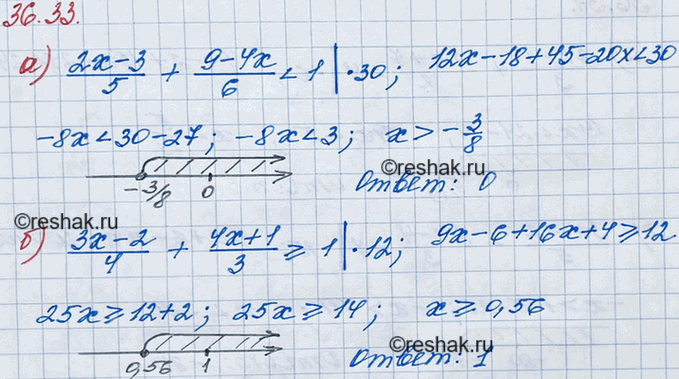 36.33.
а) (2x-3)/5 + (9-4x)/6 < 1 | ·30; 12x-18+45-20x<30
-8x<30-27; -8x<3; x > -3/8
-3/8 0 Ответ: 0
©reshak.ru
©reshak.ru
б) (3x-2)/4 + (4x+1)/3 ≥ 1 | ·12; 9x-6+16x+4≥12
25x≥12+2; 25x≥14; x≥0,56
©reshak.ru
0,56 1 Ответ: 1